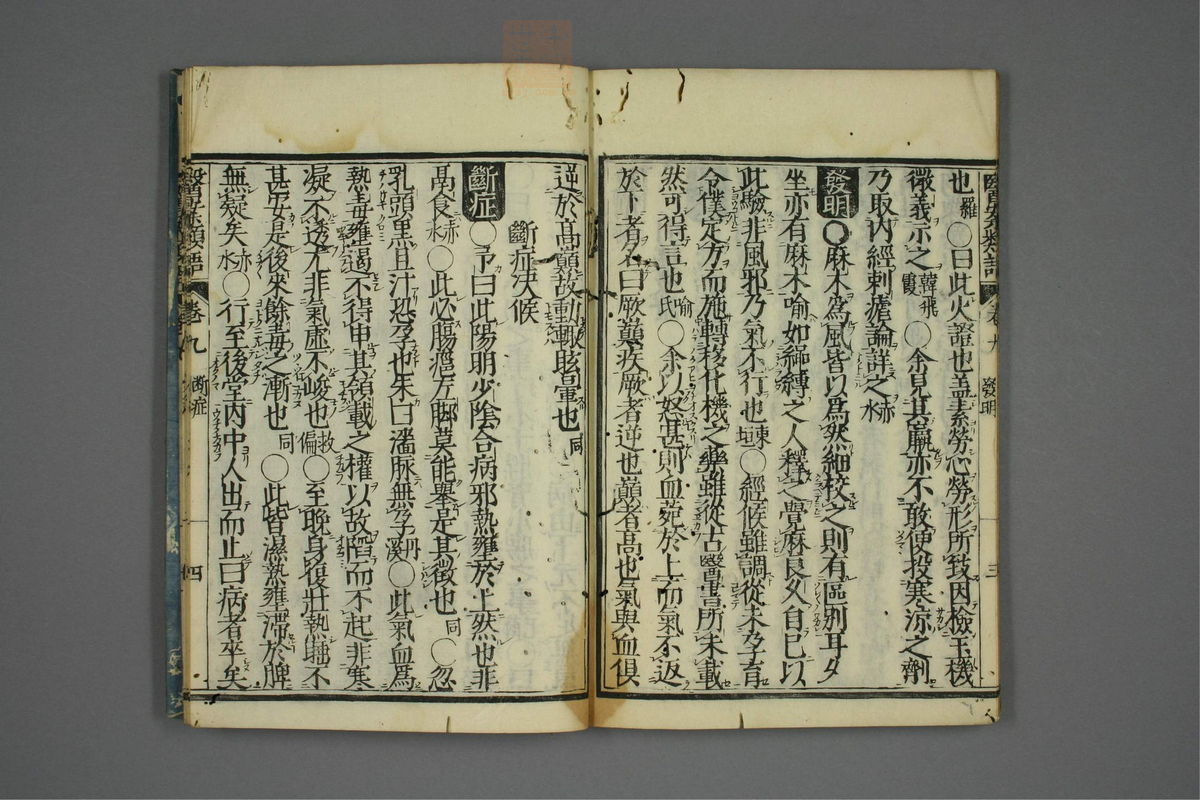 醫案類語 卷九 發明 三
也羅○曰此火證也盖素勞心勞形所致因檢玉機
微義示之韓飛霞○余見其羸亦不敢便投寒涼之劑
乃取內經刺瘧論詳之赤水
發明○麻木為風皆以為然細挍之則有區別耳夕
坐亦有麻木喻如繩縛之人釋之覺麻良久自已以
此驗非風邪乃氣不行也東垣○經候雖調從未孕育
令僕定方而施轉移化機之藥雖從古醫書所未載
然可得言也喻氏○余以怒甚則血菀於上而氣不返
於下者名曰厥巔疾厥者逆也巔者高也氣與血俱
逆於高巔故動輙眩暈也同
斷症決候
斷症○予曰此陽明少陰合病邪熱雍於上然也非
鬲食赤水○此必腸癰左脚莫能舉是其徵也同○忽
乳頭黑且汁恐孕也朱曰濇脉無孕丹溪○此氣血為
熱毒雍遏不得申其領載之權以故陷而不起非寒
凝不透尤非氣虛不峻也救偏○至晚身復壯熱睡不
甚安是後來餘毒之漸也同○此皆濕熱雍滯於脾
無疑矣赤水○行至後堂內中人出而止曰病者卒矣
醫案類語 卷九 斷症 四